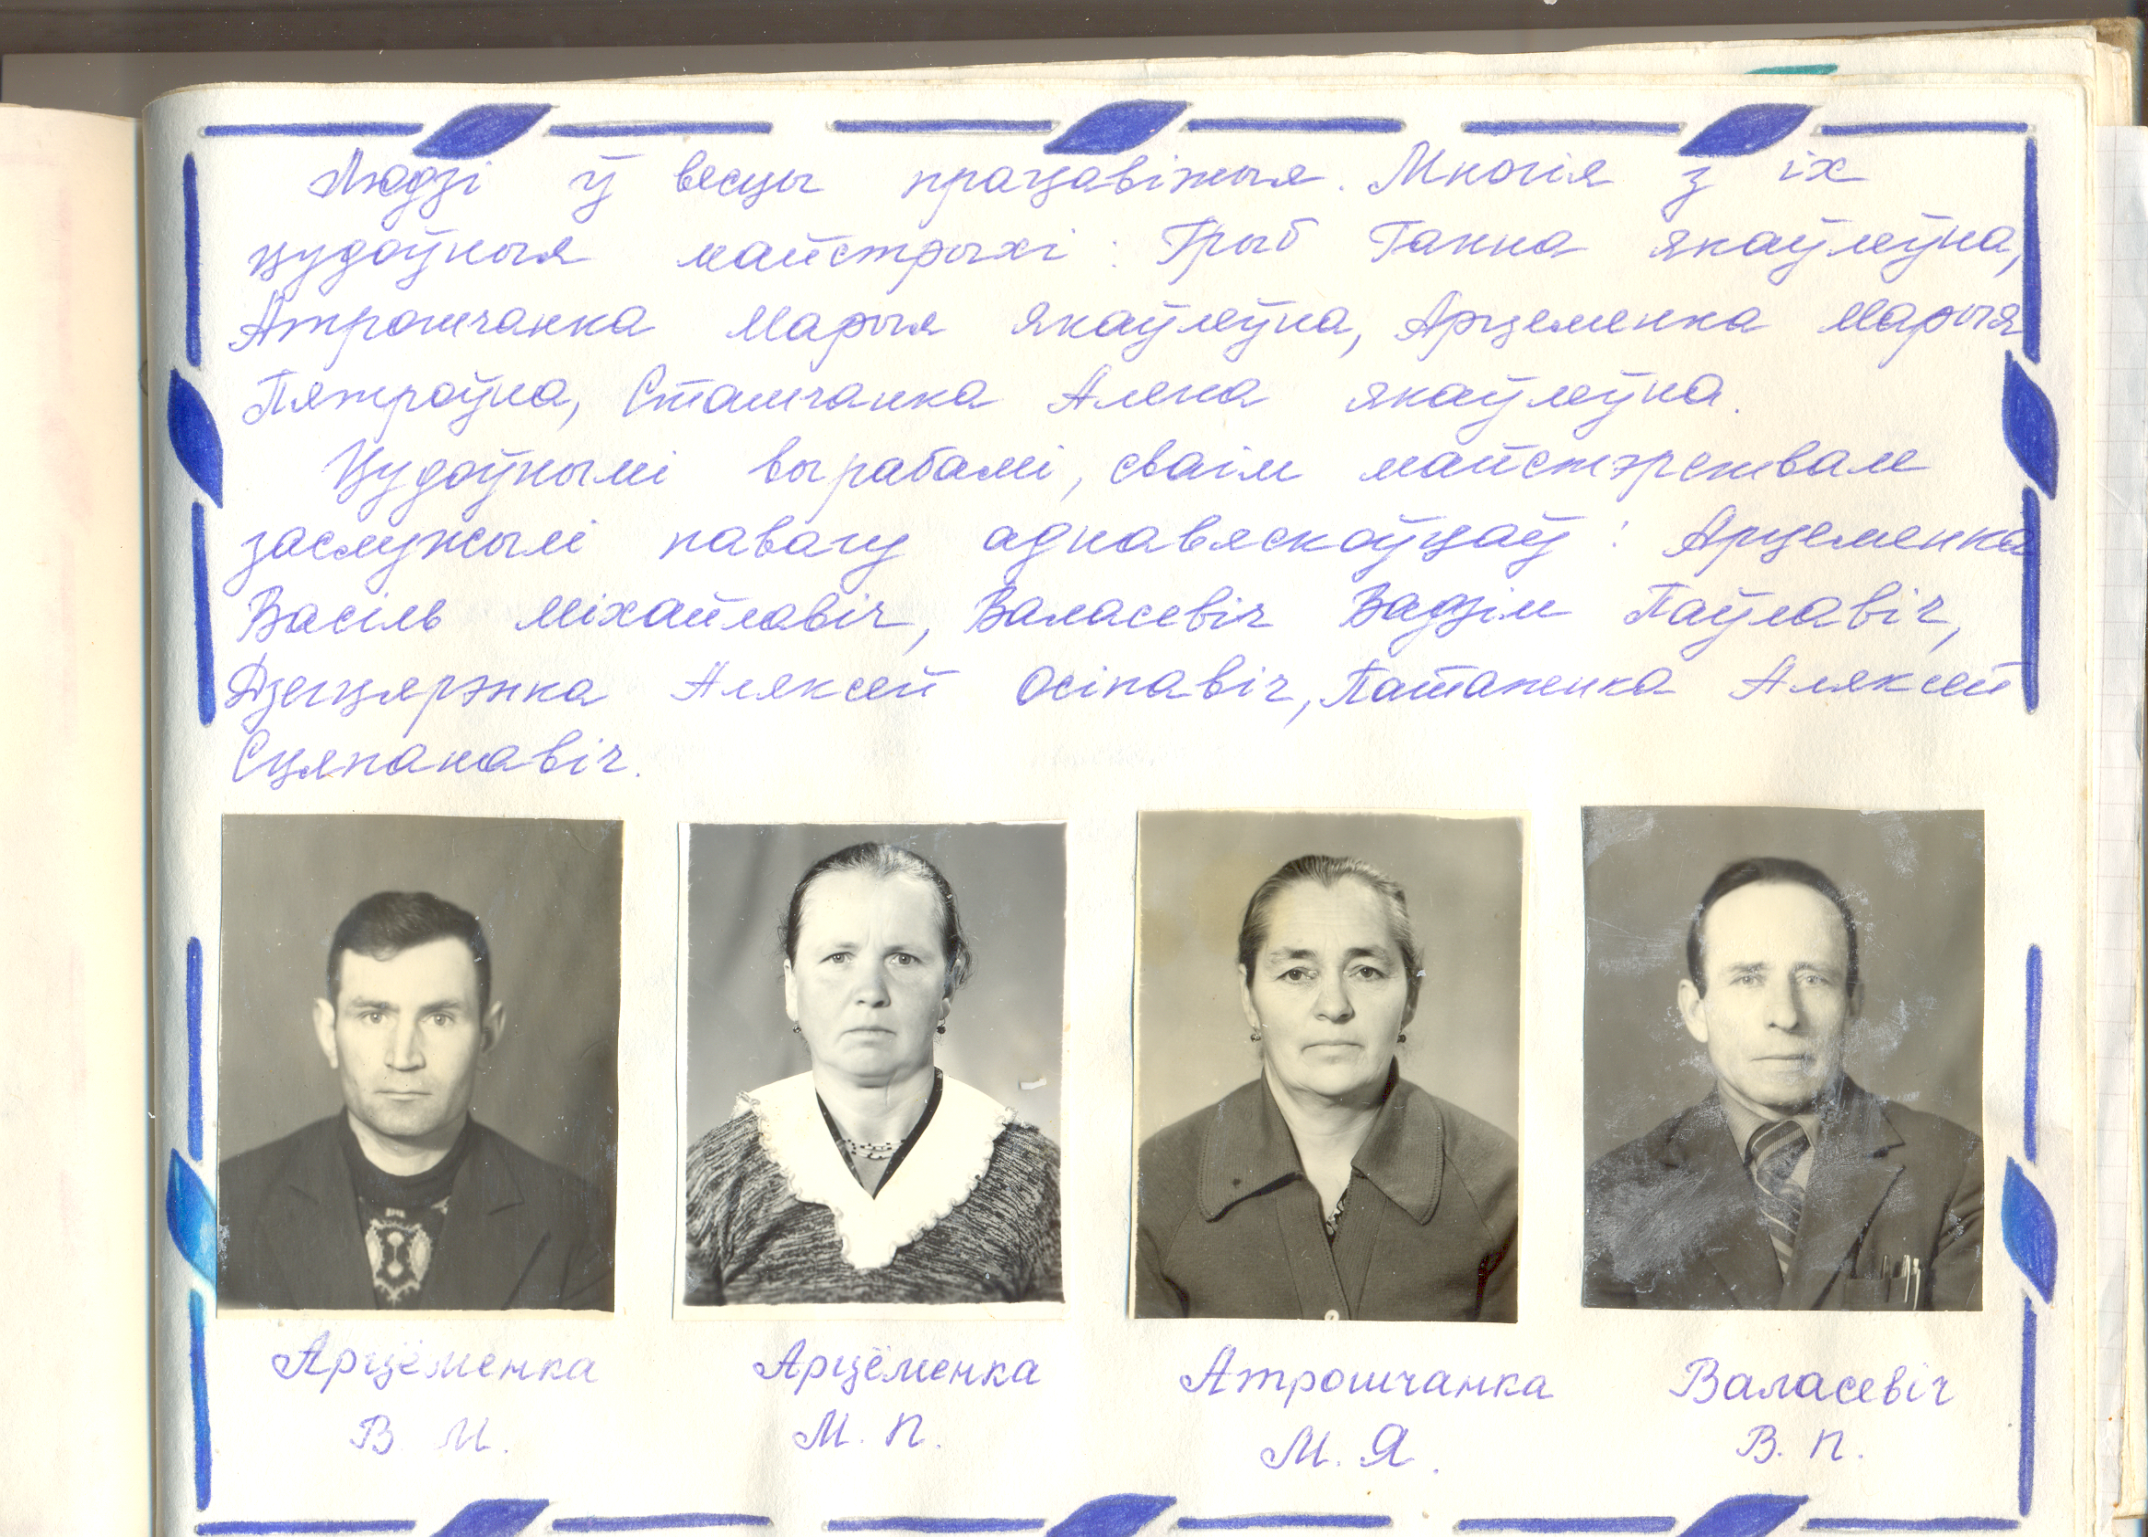 Людзі ў вёсцы працавітыя. Многія з іх
цудоўныя майстрыхі: Грыб Ганна Якаўлеўна,
Атрошчанка Марыя Якаўлеўна, Арцеменка Марыя
Пятроўна, Сташчанка Алена Якаўлеўна.
Цудоўнымі вырабамі, сваім майстэрствам
заслужылі павагу аднавяскоўцаў: Арцеменка
Васіль Міхайлавіч, Валасевіч Вадзім Паўлавіч,
Дзегцярэнка Аляксей Осіпавіч, Паташенка Аляксей
Сцяпанавіч.
Арцёменка Арцёменка Атрошчанка Валасевіч
В. М. М. П. М. Я. В. П.